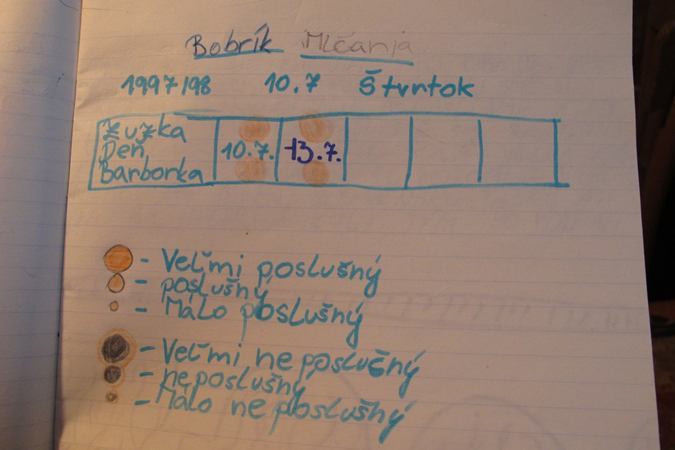 Bobrík Mlčania
1997/98 10.7 Štvrtok
Zuzka
Deň 10.7. 13.7.
Barborka
- Veľmi poslušný
- poslušný
- Málo poslušný
- Veľmi neposlučný
- neposlušný
- Málo neposlušný